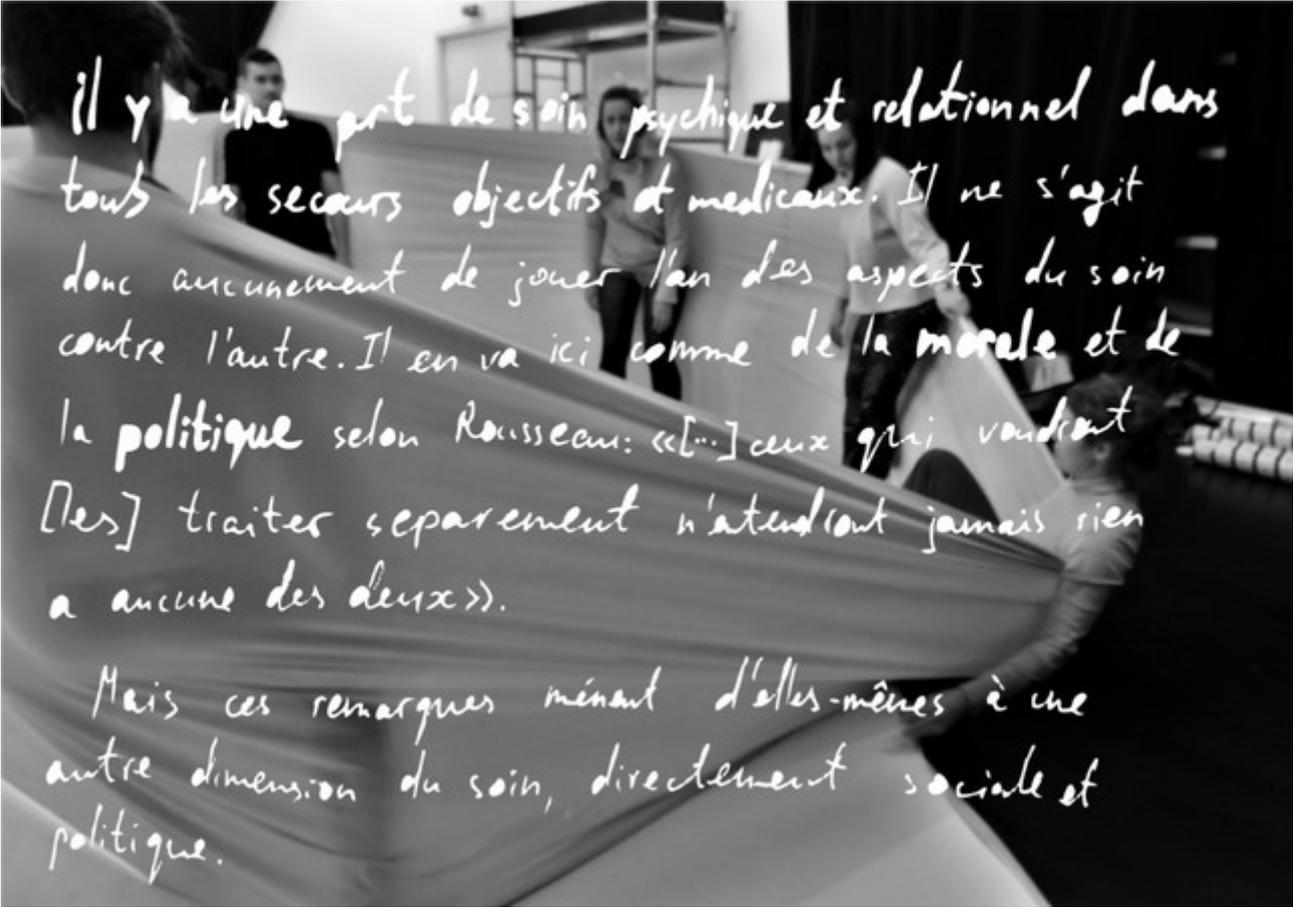 il y a une part de soin psychique et relationnel dans
tous les secours objectifs et medicaux. Il ne s'agit
donc aucunement de jouer l'un des aspects du soin
contre l'autre. Il en va ici comme de la morale et de
la politique selon Rousseau: «[...] ceux qui voudront
[les] traiter separement n'entendront jamais rien
a aucune des deux».
Mais ces remarques ménent d'elles-mêmes à une
autre dimension du soin, directement sociale et
politique.